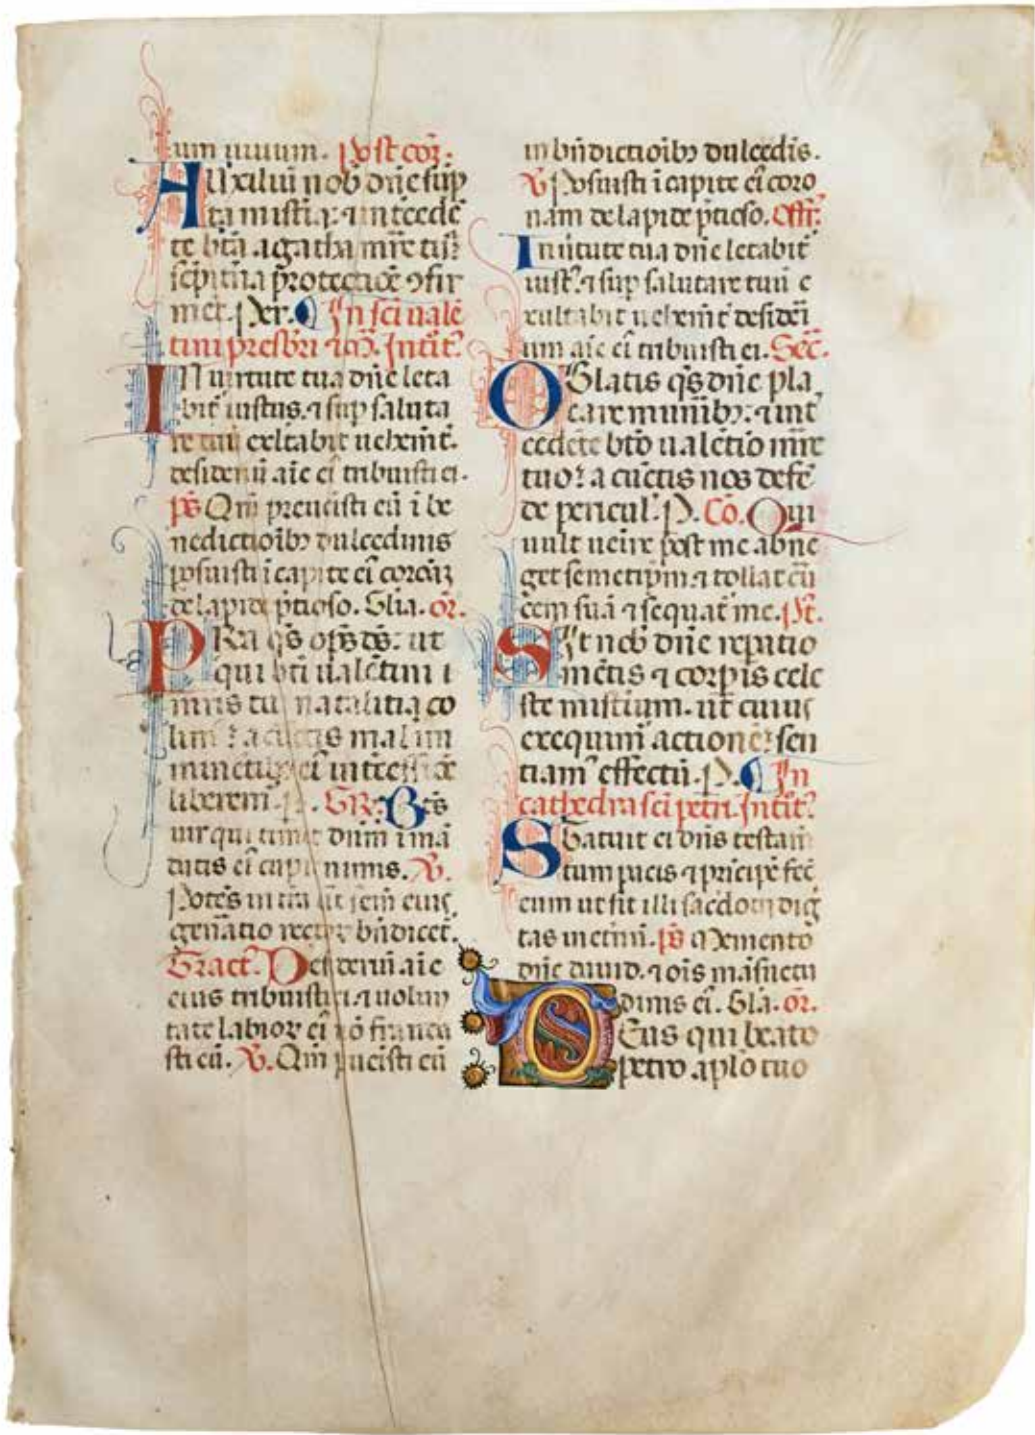 um uiuum. Post cōr:
AUxiliū nob̄ dn̄e sup
ta mist̄ia: ⁊ int̄cedē
te bt̄a agatha mr̄e tu
sēpit̄na p̄rotectiōe ꝯfir
met. Per. In sc̄i ualē
tini presbr̄i ⁊ m̄r. Intit̄.
IN uirtute tua dn̄e leta
bit̄ iustus. ⁊ sup saluta
re tuū exltabit uehem̄t.
desideriū aīe eī tribuisti ei.
ps̄ Qm̄ preuēisti eū ī be
nedictioīb; dulcedinis
posuisti ī capite eī coronā
de lapide p̄tioso. Gl̄ia. or̄.
PRa q̄s op̄s d̄s: ut
qui bt̄i ualētini m̄
iris tui natalitia co
lim᷒ a cūctis malis im
minētib; eī intercessiōe
liberem᷒. P. GR: Bt̄s
uir qui timet dn̄m ī mā
datis eī cupit nimis. V.
Potēs in tr̄a erit sem̄ eius
gen̄atio rector̄ bn̄dicet̄.
Tract̄. Desideriū aīe
eius tribuisti ei. ⁊ uolun
tate labioꝝ eī nō frauda
sti eū. V. Qm̄ p̄uēisti eū
in bn̄dictioīb; dulcedīs.
V Posuisti ī capite eī coro
nam de lapide p̄tioso. Off̄r.
In uirtute tua dn̄e letabit̄
iust᷒. ⁊ sup salutare tuū e
xultabit uehem̄t desideri
um aīe eī tribuisti ei. Sec̄.
OBlatis q̄s dn̄e pla
care munib;: ⁊ int̄
cedēte bt̄o ualētīo mr̄e
tuo: a cūctis nos defē
de pericul᷒. P. Cō. Qui
uult ueīre post me abne
get semetip̄m. ⁊ tollat cru
cem suā ⁊ seq̄uat̄ me. Pt̄.
SIt nob̄ dn̄e rep̄atio
mētis ⁊ corp̄is cele
ste mist̄ium. ut cuius
exequim᷒ actionē: sen
tiam᷒ effectū. P. In
cathedra sc̄i petri. Intit̄.
STatuit ei dn̄s testam̄
tum pacis ⁊ pricipē fec̄
eum ut sit illi sac̄dotij diḡ
tas in et̄nū. ps̄ Memento
dn̄e dauid. ⁊ oīs māsuetu
dinis eī. Gl̄a. or̄.
DEus qui beato
petro ap̄lo tuo